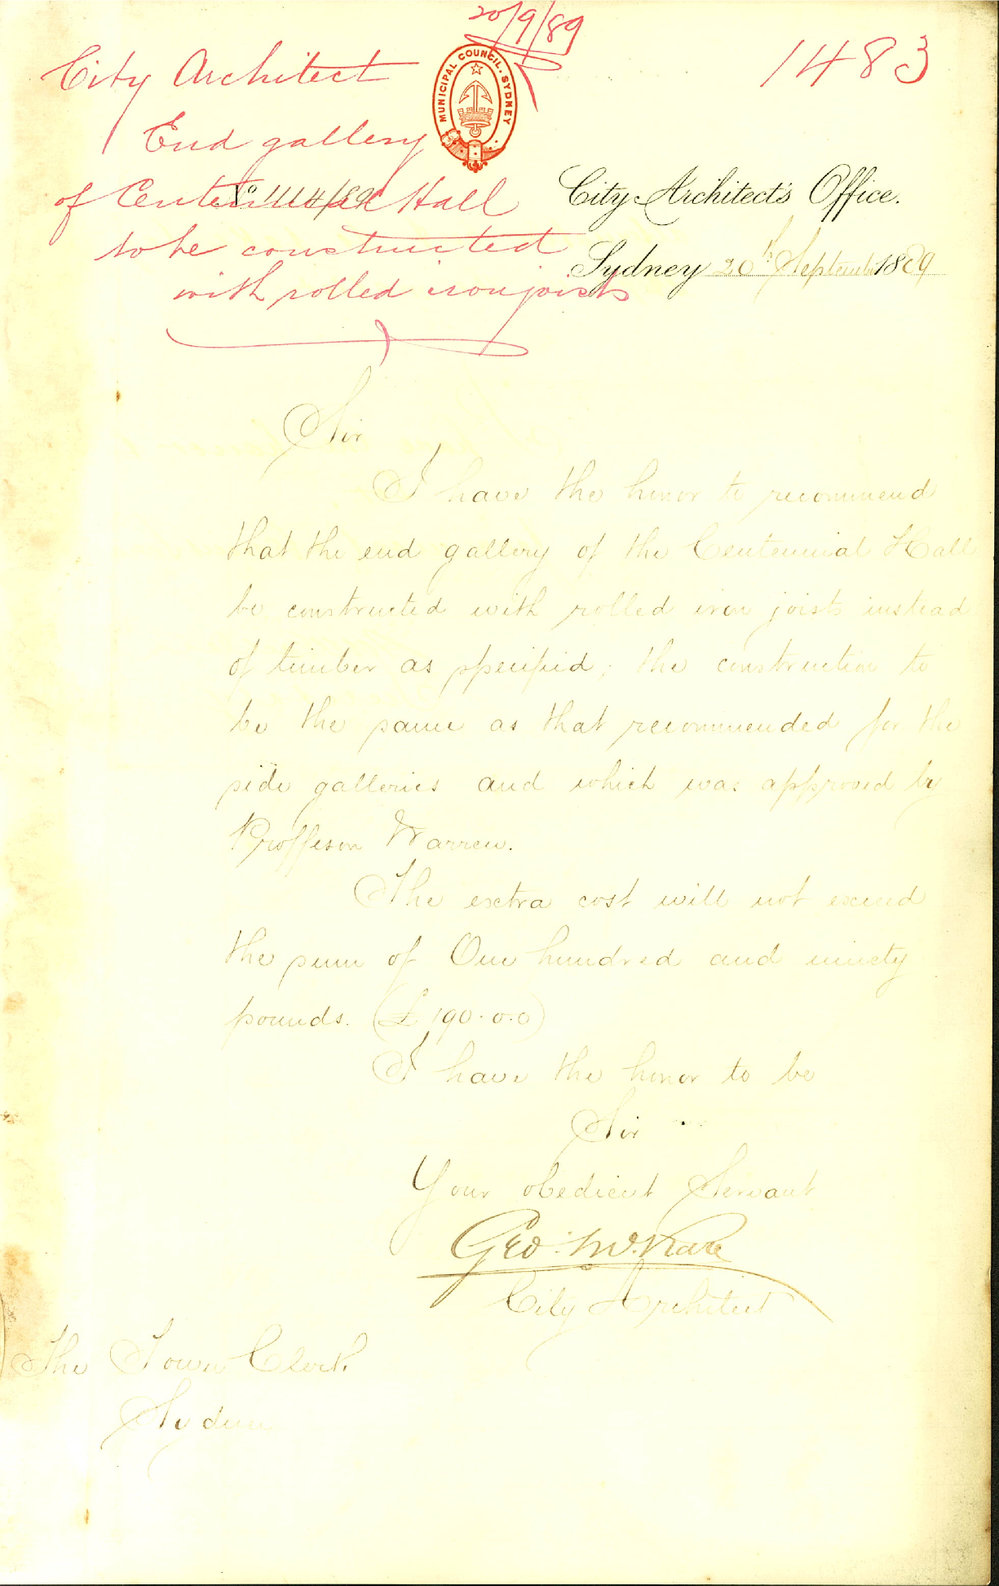 20/9/89
1483
City Architect
End gallery
of Centennial Hall
to be constructed
with rolled iron joists
MUNICIPAL COUNCIL. SYDNEY
No 1114/89
City Architect's Office.
Sydney 20th September 1889
Sir
I have the honor to recommend
that the end gallery of the Centennial Hall
be constructed with rolled iron joists instead
of timber as specified; the construction to
be the same as that recommended for the
side galleries and which was approved by
Proffesor Warren.
The extra cost will not exceed
the sum of One hundred and ninety
pounds. (£190.0.0)
I have the honor to be
Sir
Your obedient Servant
Geo. McRae
City Architect
The Town Clerk
Sydney